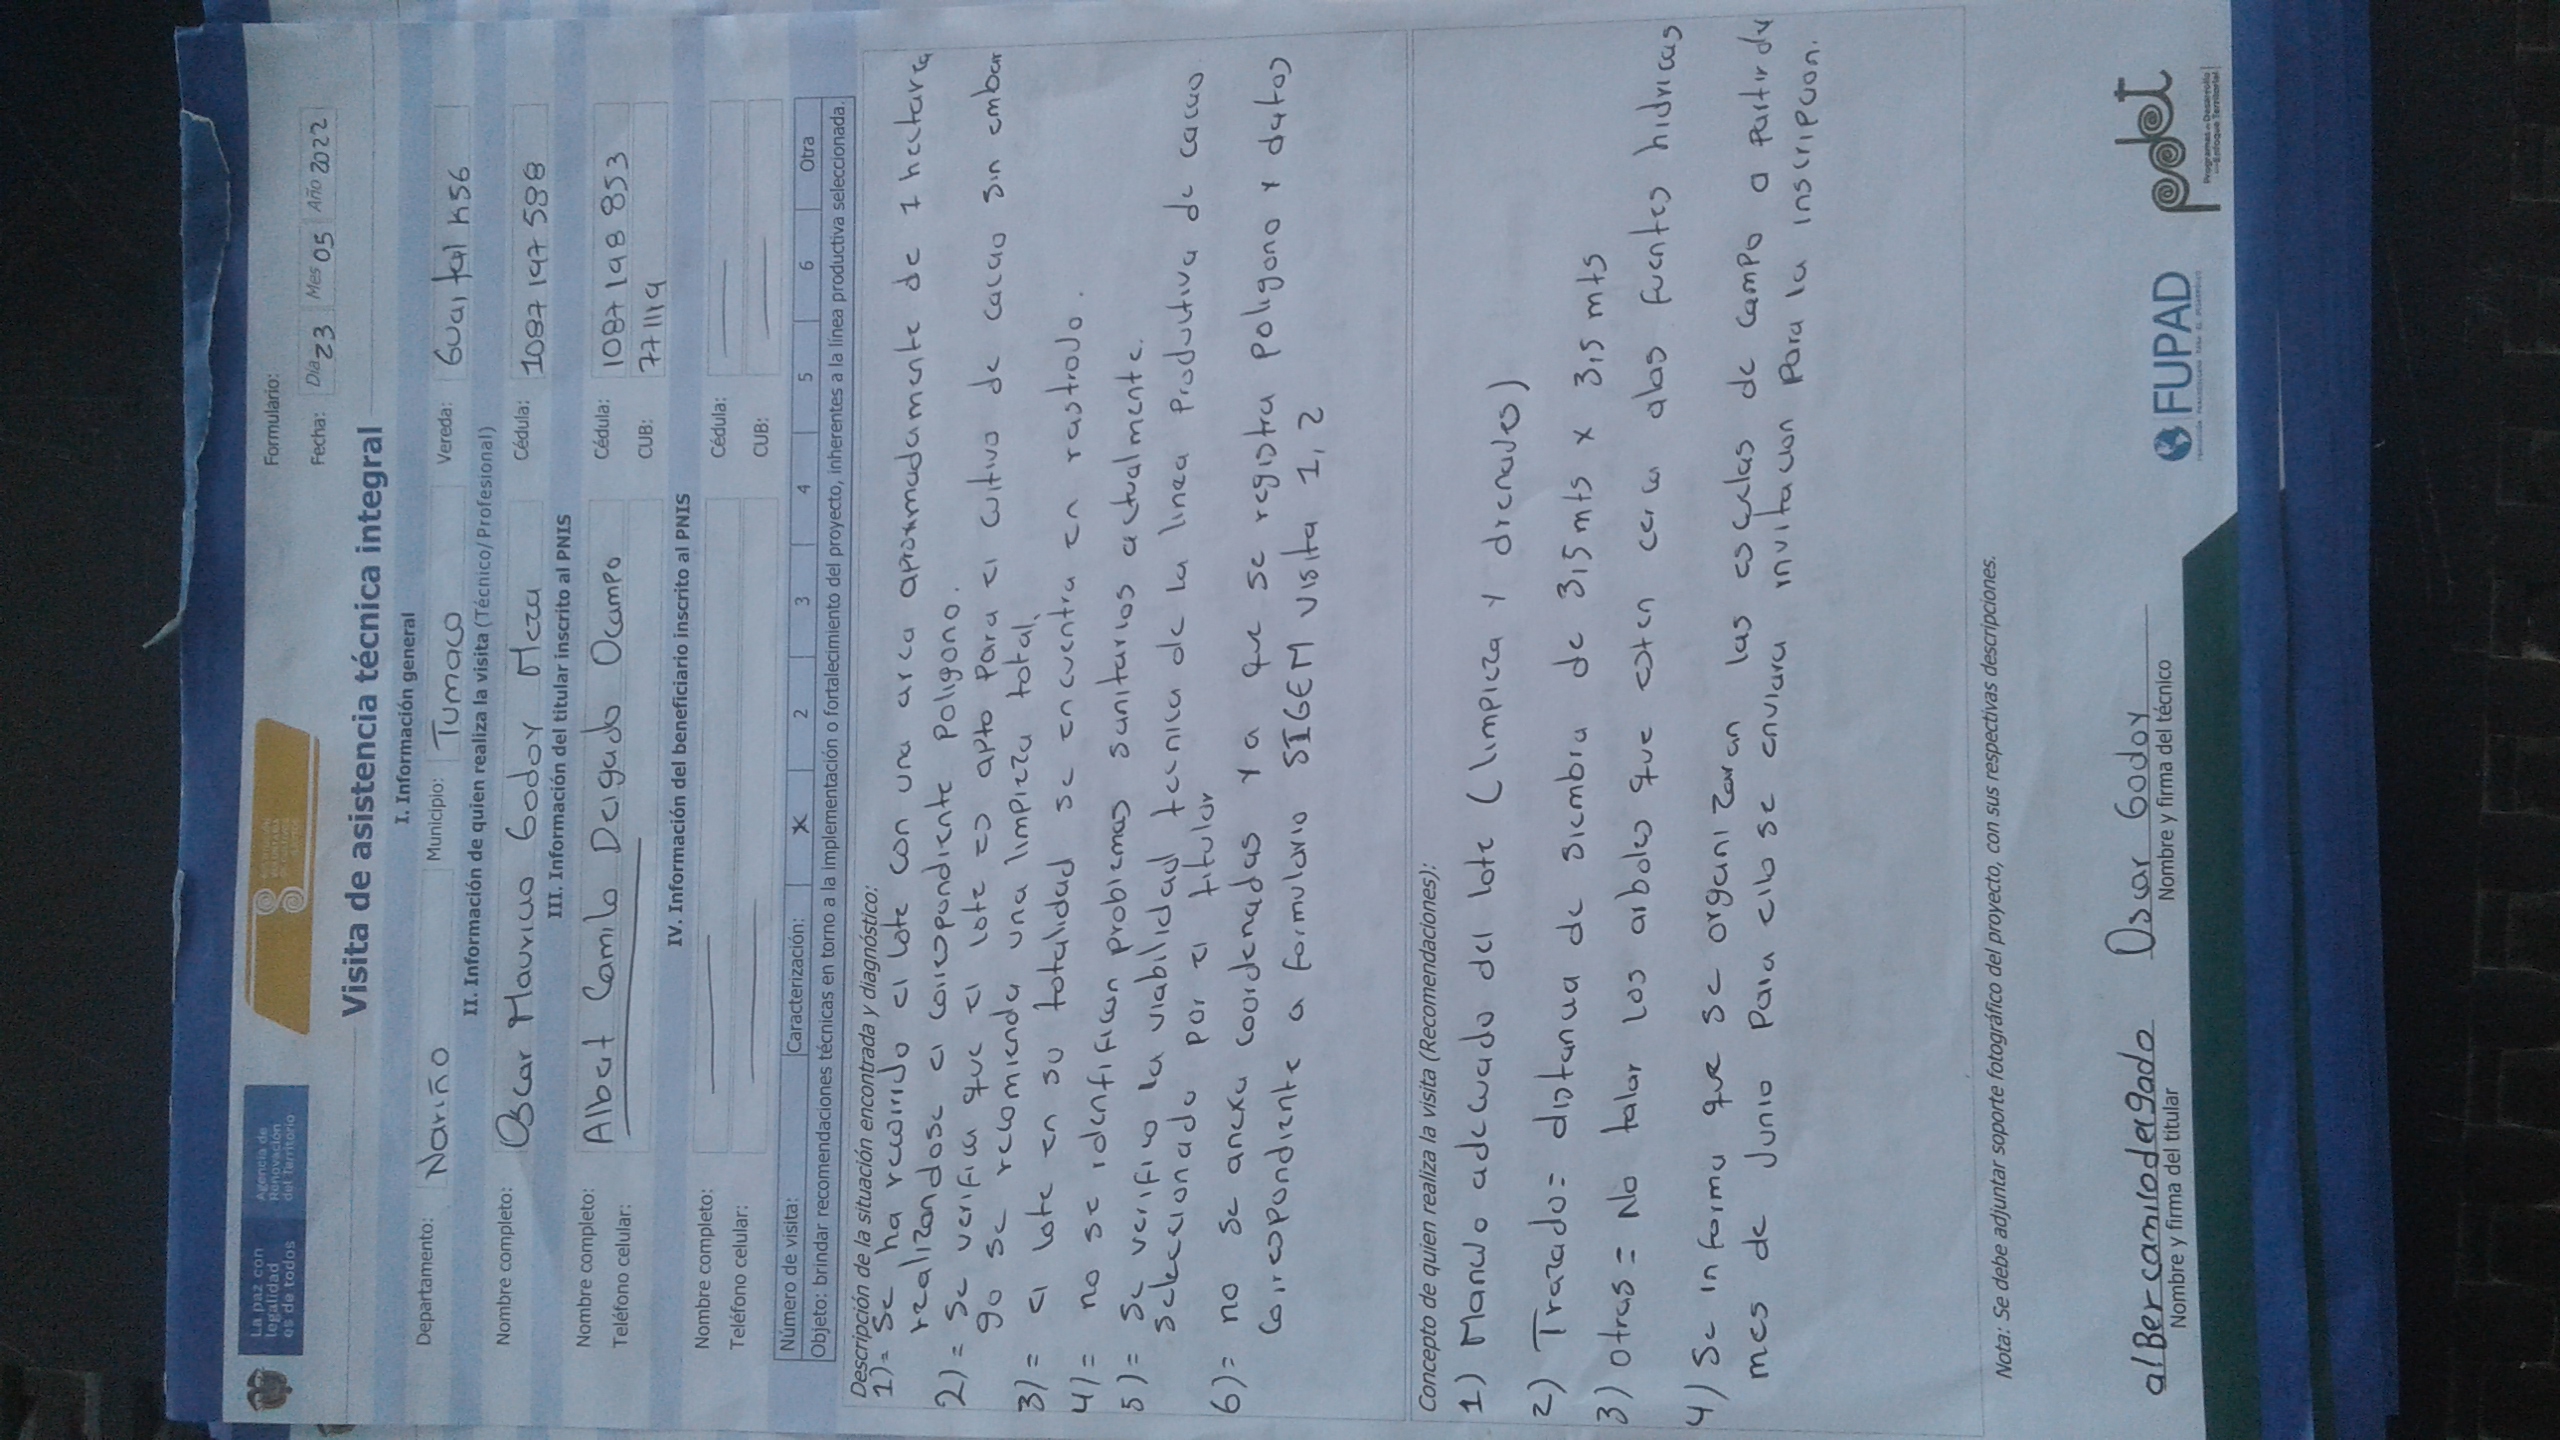 La paz con
legalidad
es de todos
Agencia de
Renovación
del Territorio
Formulario:
Fecha: Dia 23 Mes 05 Año 2022
Visita de asistencia técnica integral
I. Información general
Departamento: Nariño Municipio: Tumaco Vereda: Guaital K56
II. Información de quien realiza la visita (Técnico/Profesional)
Nombre completo: Oscar Mauricio Godoy Meza Cédula: 1087 197 588
III. Información del titular inscrito al PNIS
Nombre completo: Albert Camilo Delgado Ocampo Cédula: 1087 198 853
Teléfono celular: CUB: 771119
IV. Información del beneficiario inscrito al PNIS
Nombre completo: Cédula:
Teléfono celular: CUB:
Número de visita: Caracterización: X 2 3 4 5 6 Otra
Objeto: brindar recomendaciones técnicas en torno a la implementación o fortalecimiento del proyecto, inherentes a la línea productiva seleccionada.
Descripción de la situación encontrada y diagnóstico:
1)= Se ha recorrido el lote con una area aproximadamente de 1 hectarea
realizandose el correspondiente poligono.
2)= se verifica que el lote es apto para el cultivo de cacao sin embar
go se recomienda una limpieza total.
3)= el lote en su totalidad se encuentra en rastrojo.
4)= no se identifican problemas sanitarios actualmente.
5)= se verifico la viabilidad tecnica de la linea productiva de cacao
seleccionado por el titular
6)= no se anexa coordenadas ya que se registra poligono y datos
correspondiente a formulario SIGEM visita 1,2
Concepto de quien realiza la visita (Recomendaciones):
1) Manejo adecuado del lote (limpieza y drenajes)
2) Trazado= distancia de siembra de 3,5 mts x 3,5 mts
3) otras = No talar los arboles que esten cerca alas fuentes hidricas
4) Se informa que se organizaran las escuelas de campo a partir de
mes de Junio para ello se enviara invitacion para la inscripcion.
Nota: Se debe adjuntar soporte fotográfico del proyecto, con sus respectivas descripciones.
alBercamilodelgado
Nombre y firma del titular
Oscar Godoy
Nombre y firma del técnico
FUPAD
pdet
Programas de Desarrollo
con Enfoque Territorial